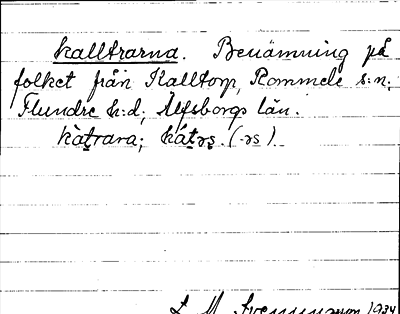 kalltrarna. Benämning på
folket från Kalltorp, Rommele s:n,
Flundre h:d, Älfsborgs län.
kàt̯rara; kát̯ɘs. (-ɘs).
1934